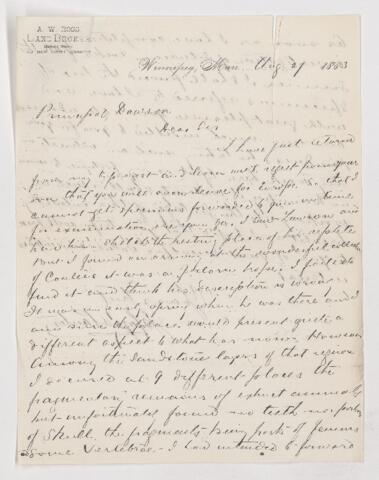 A. W. ROSS
LAND BROKER
Winnipeg, Man. Aug 29 1883
Principal Dawson
Dear Sir
I have just returned
from my trip west and learn with regret from your
son that you will soon leave for Europe so that I
cannot get specimens forwarded to you in time
for examination by you. I saw Lawson and
resting place of his reptile
but I found on arriving at the wonderful
of Coulies it was a forlorn hope. I failed to
find it and think his description is wrong
It was in early spring when he was there and I
am sure the places would present quite a
different aspect to what has now. However
among the sandstone layers of that region
I secured at 9 different places the
fragmentary remains of extinct animals
but unfortunately found no teeth nor parts
of Skull, the fragments being parts of femurs
some vertebrae - I had intended to forward